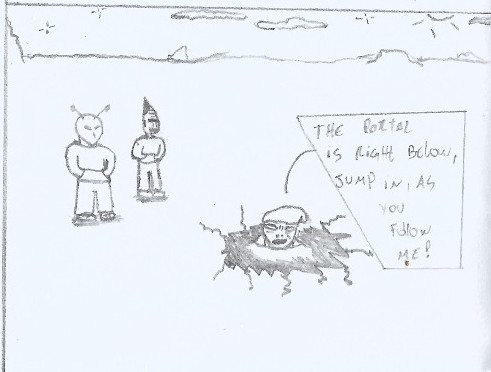 THE PORTAL
IS RIGHT BELOW,
JUMP IN, AS
YOU
FOLLOW
ME!